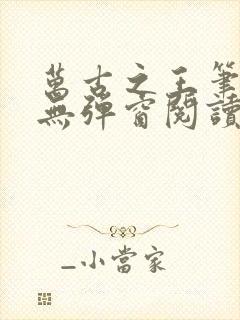 萬古之王筆
無彈窗閱讀
_小當家